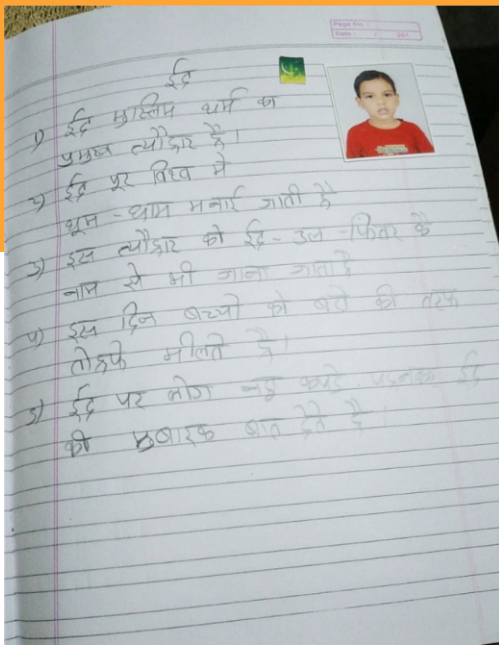 Page No :
Date : / 201
ईद
1) ईद मुस्लिम धर्म का
प्रमुख त्यौहार है।
2) ईद पूर विश्व मे
धूम - धाम मनाई जाती है
3) इस त्यौहार को ईद - उल - फितर के
नाम से भी जाना जाता है
4) इस दिन बच्चो को बरो की तरफ
तोहफे मीलते है।
5) ईद पर लोग नइ कपरे पहनकर ईद
की मुबारक बात देते है।